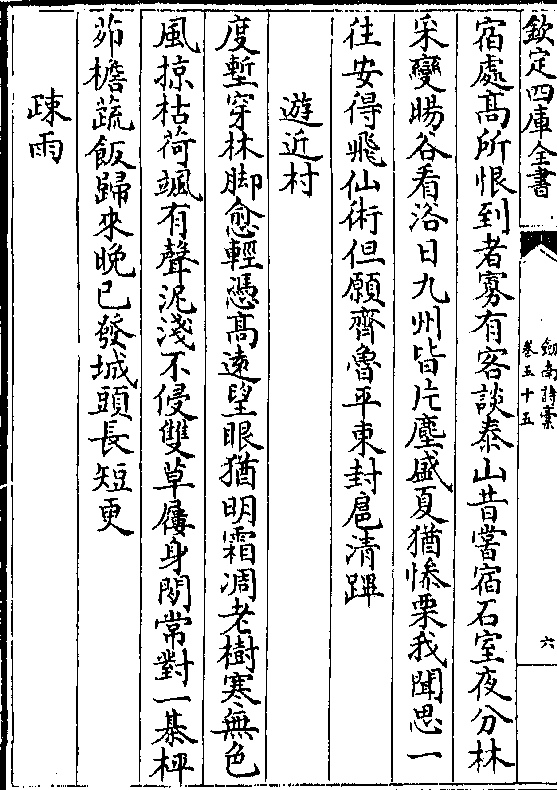 欽定四庫全書
劒南詩稾
卷五十五
六
宿處髙所恨到者寡有客談泰山昔嘗宿石室夜分林
采變暘谷看洛日九州皆片塵盛夏猶慘栗我聞思一
往安得飛仙術但願齊魯平東封扈清蹕
遊近村
度塹穿林脚愈輕憑髙逺望眼猶明霜凋老樹寒無色
風掠枯荷颯有聲泥淺不侵雙草屨身閒常對一棊枰
茆檐蔬飯歸來晚已發城頭長短更
疎雨